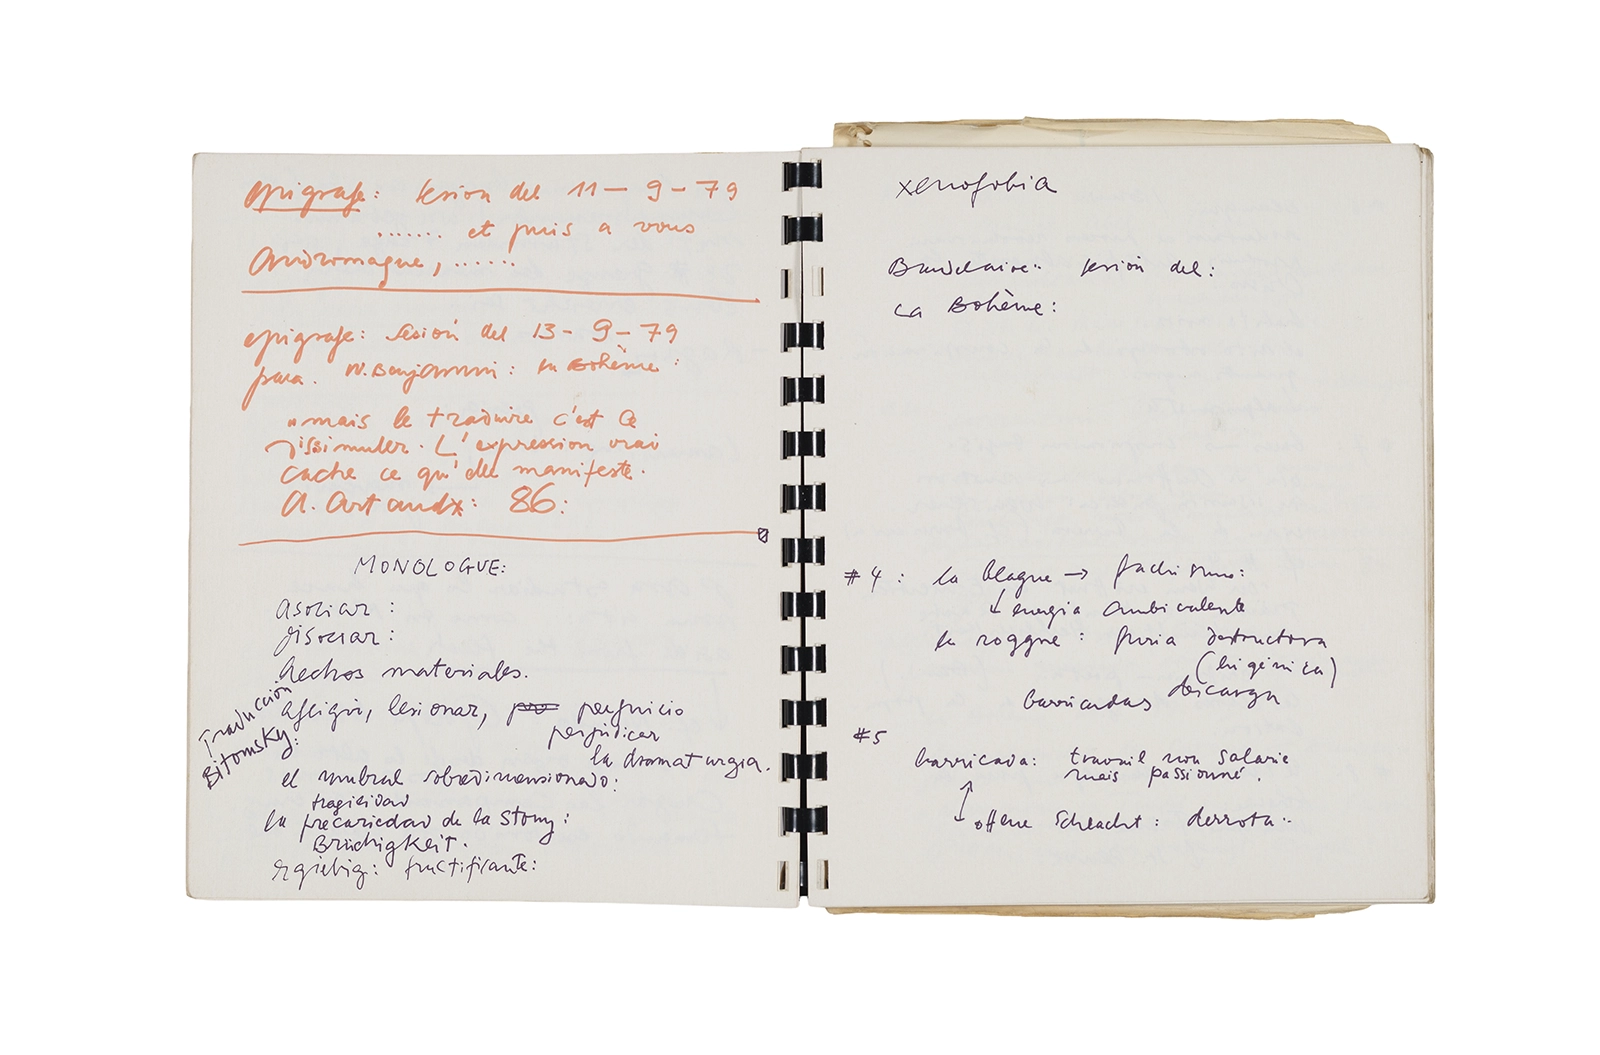 epigrafe: sesion del 11 - 9 - 79
...... et puis a vous
Andromaque, ......
epigrafe: sesión del 13 - 9 - 79
para. W. Benjamin: la Bohème:
"mais le traduire c'est le
dissimuler. L'expression vrai
cache ce qu'elle manifeste.
A. Artaudx: 86:
MONOLOGUE:
asociar:
disociar:
hechos materiales.
Traducción
Bitomsky:
afligir, lesionar, perjuicio
perjudicar
la dramaturgia.
el umbral sobredimensionado:
fragilidad
la precariedad de la Story:
Brüchigkeit.
ergiebig: fructificante:
xenofobia
Baudelaire: sesión del:
La Bohème:
#4: la blague → fachismo:
↓ energia ambivalente
la rogne: furia destructora
(higiénica)
barricadas descarga
#5
barricada: travail non salarié
mais passionné.
↕ offene Schlacht: derrota..